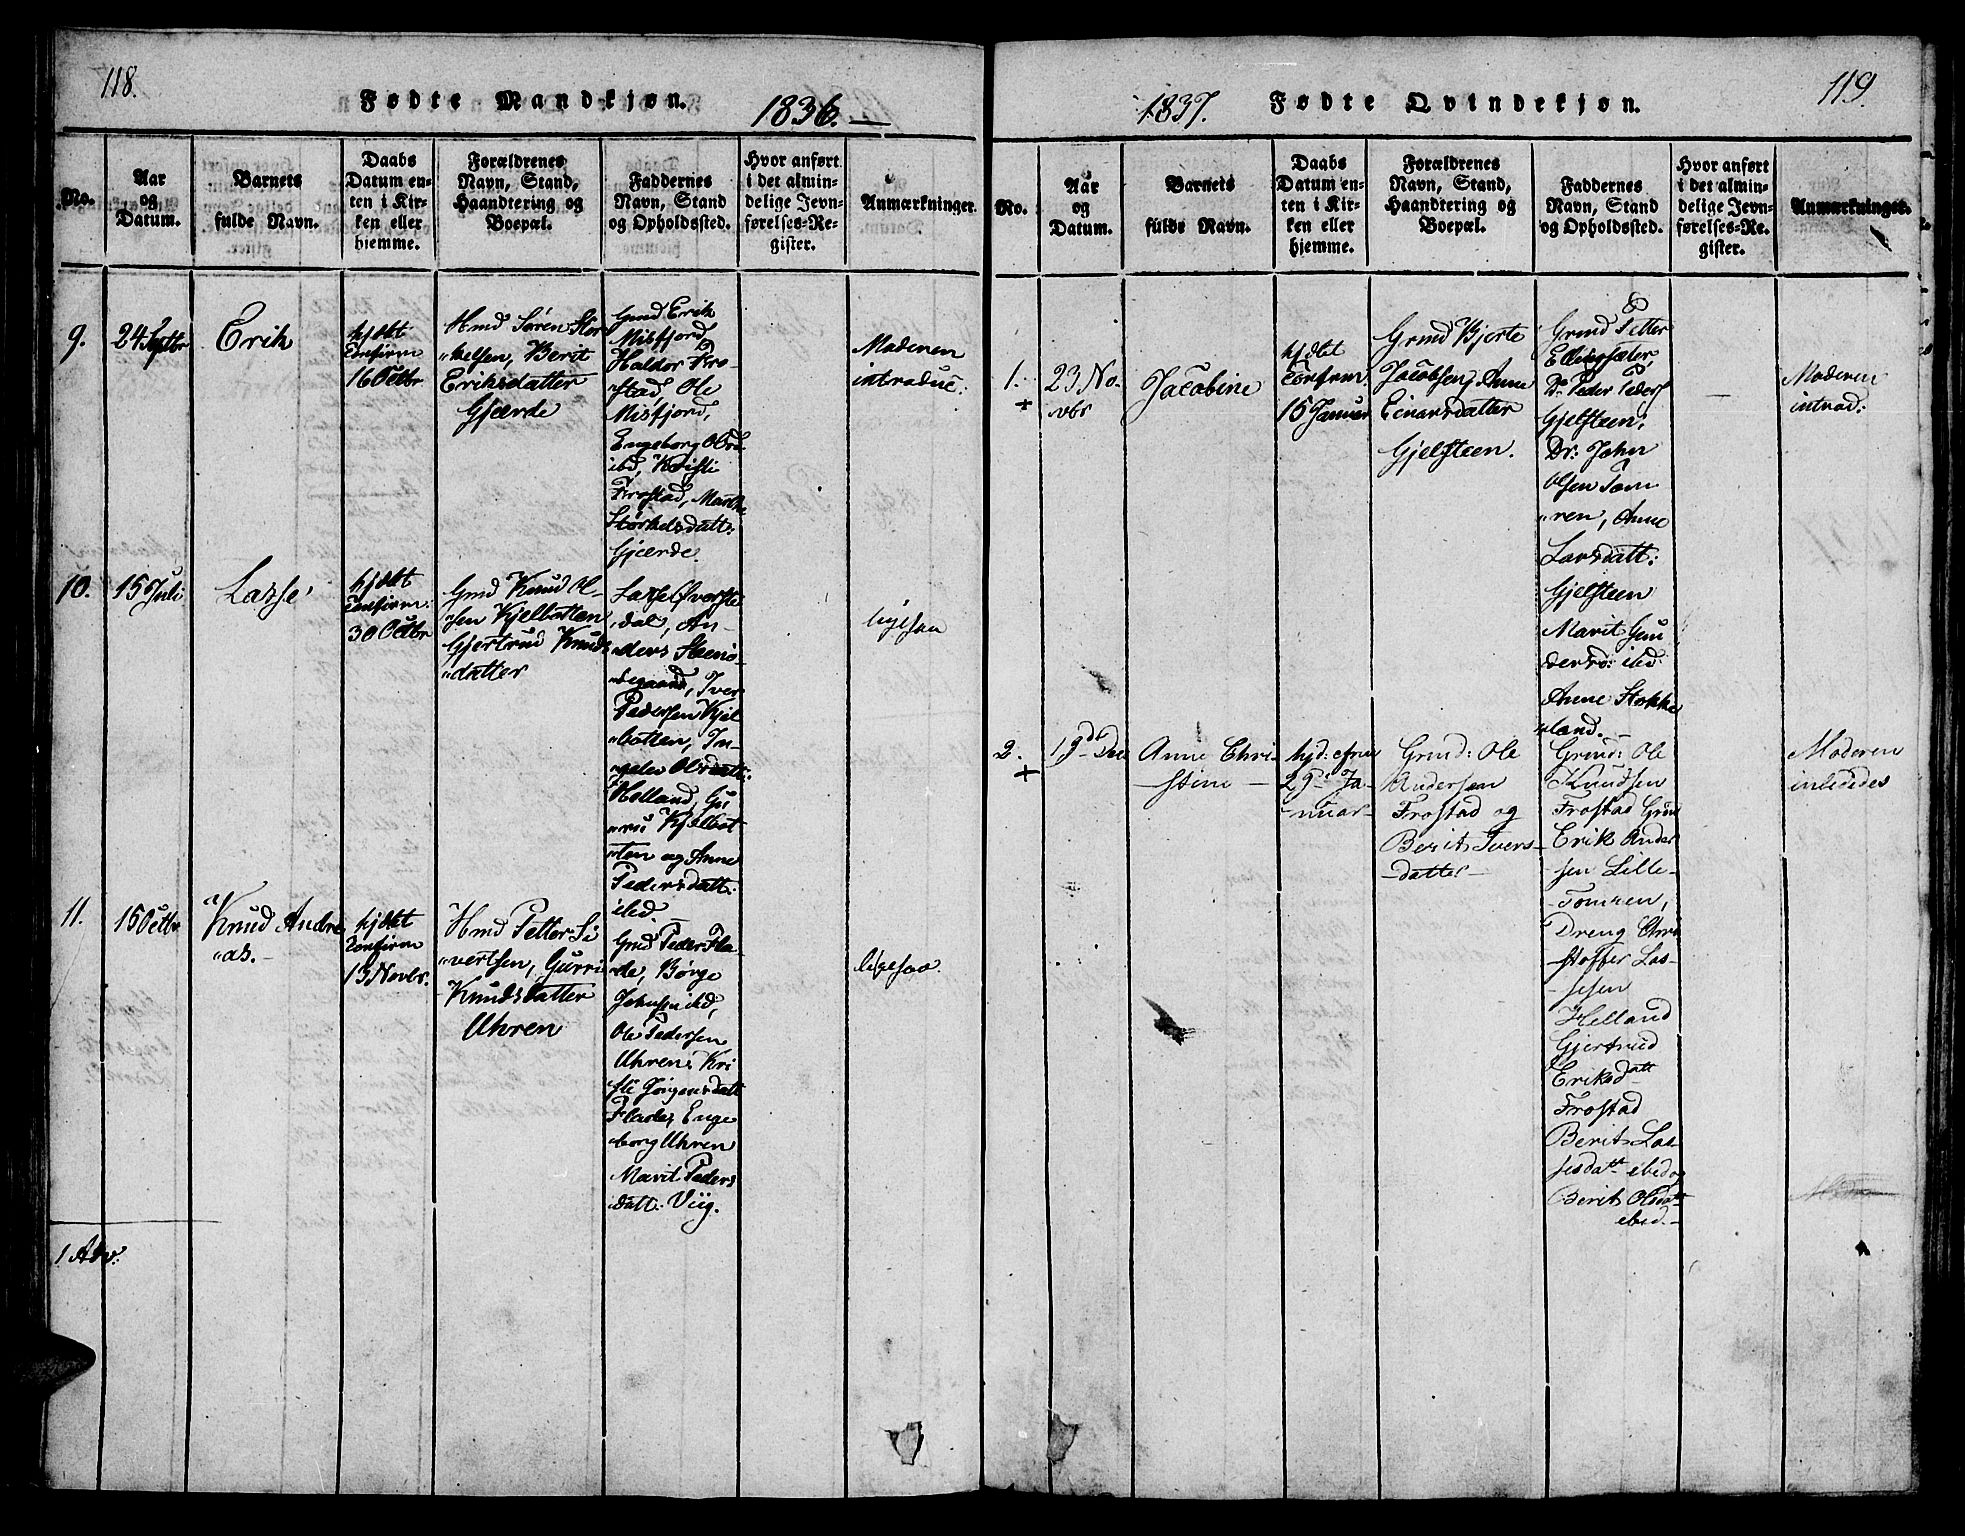 118.
Fødte Mandkjøn.
1836.
No.
Aar
og
Datum.
Barnets
fulde Navn.
Daabs
Datum en-
ten i Kir-
ken eller
hjemme.
Forældrenes
Navn, Stand,
Haandtering og
Boepæl.
Faddernes
Navn, Stand
og Opholdssted.
Hvor anført
i det almin-
delige Jevn-
førelses-Re-
gister.
Anmærkninger.
9.
24 Septbr
Erik
hjdøbt
Confirm
16 Octbr
Hmd Søren Stor
"kelsen, Berit
Eriksdatter
Gjærde
Gmd Erik
Misfjord,
Haldor Fro-
stad, Ole
Misfjord,
Engeborg Olsd
ibd, Kristi
Frostad, Marthe
Størkelsdatt:
Gjærde.
Moderen
introduc:
10.
15 Juli
Lasse
hjdøbt
Confirm:
30 Octbr
Gmd Knud Ol-
sen Kjelbotten
Gjertrud Knuds
"datter
Lasse Øverste
dal, An-
"ders
"degaard, Iver
Pedersen Kjel
"botten, In-
"geber Olsdatt:
Helland, Gu
"ru Kjelbot
"ten og Anne
Pedersdatt:
ibd
ligesaa
11.
15 Octbr
Knud Andre
"as.-
hjdøbt
Confirm
13 Novbr.
Hmd Petter Si
"vertsen, Gurri
Knudsdatter
Uhren
Gmd Peder Fla-
"de, Børge
Johnsen ibd,
Ole Pedersen
Uhren, Kri
sti Jørgensdatt
Flade, Enge
"borg Uhren
Marit Peders
datt: Viig.
ligesaa.
1 Adv:
119.
1837.
Fødte Qvindekjøn.
No.
Aar
og
Datum.
Barnets
fulde Navn.
Daabs
Datum en-
ten i Kir-
ken eller
hjemme.
Forældrenes
Navn, Stand,
Haandtering og
Boepæl.
Faddernes
Navn, Stand
og Opholdssted.
Hvor anført
i det almin-
delige Jevn-
førelses-Re-
gister.
Anmærkninger.
1.
+
23 No-
vbr
Jacobine
hjdøbt
Confirm.
15 Januar
Grmd Bjerte
Jacobsen, Anne
Einarsdatter
Gjelsteen.
Grmd Petter
Ellingsæter,
Dr: Peder Peders
Gjelsteen,
Dr: John
Olsen Tom
"ren, Anne
Larsdatt:
Gjelsteen
Marit Gun
ibd:
Anne Stokke
"land.-
Moderen
introd:
2.
+
19de Dec
Anne Chri-
-stine-
29de Ja-
nuar-
Grmd: Ole
Andersen
Frostad og
Berit Ivers-
-datter-
Grmd: Ole
Knudsen
Frostad Grm
Erik Ander
sen Lille-
Tomren,
Dreng Chri
stoffer Las-
sesen
Helland
Gjertrud
Eriksdatt
Frostad
Berit Las-
sesdatt ibd og
Berit Olsdatt
ibid.-
Moderen
inlededes